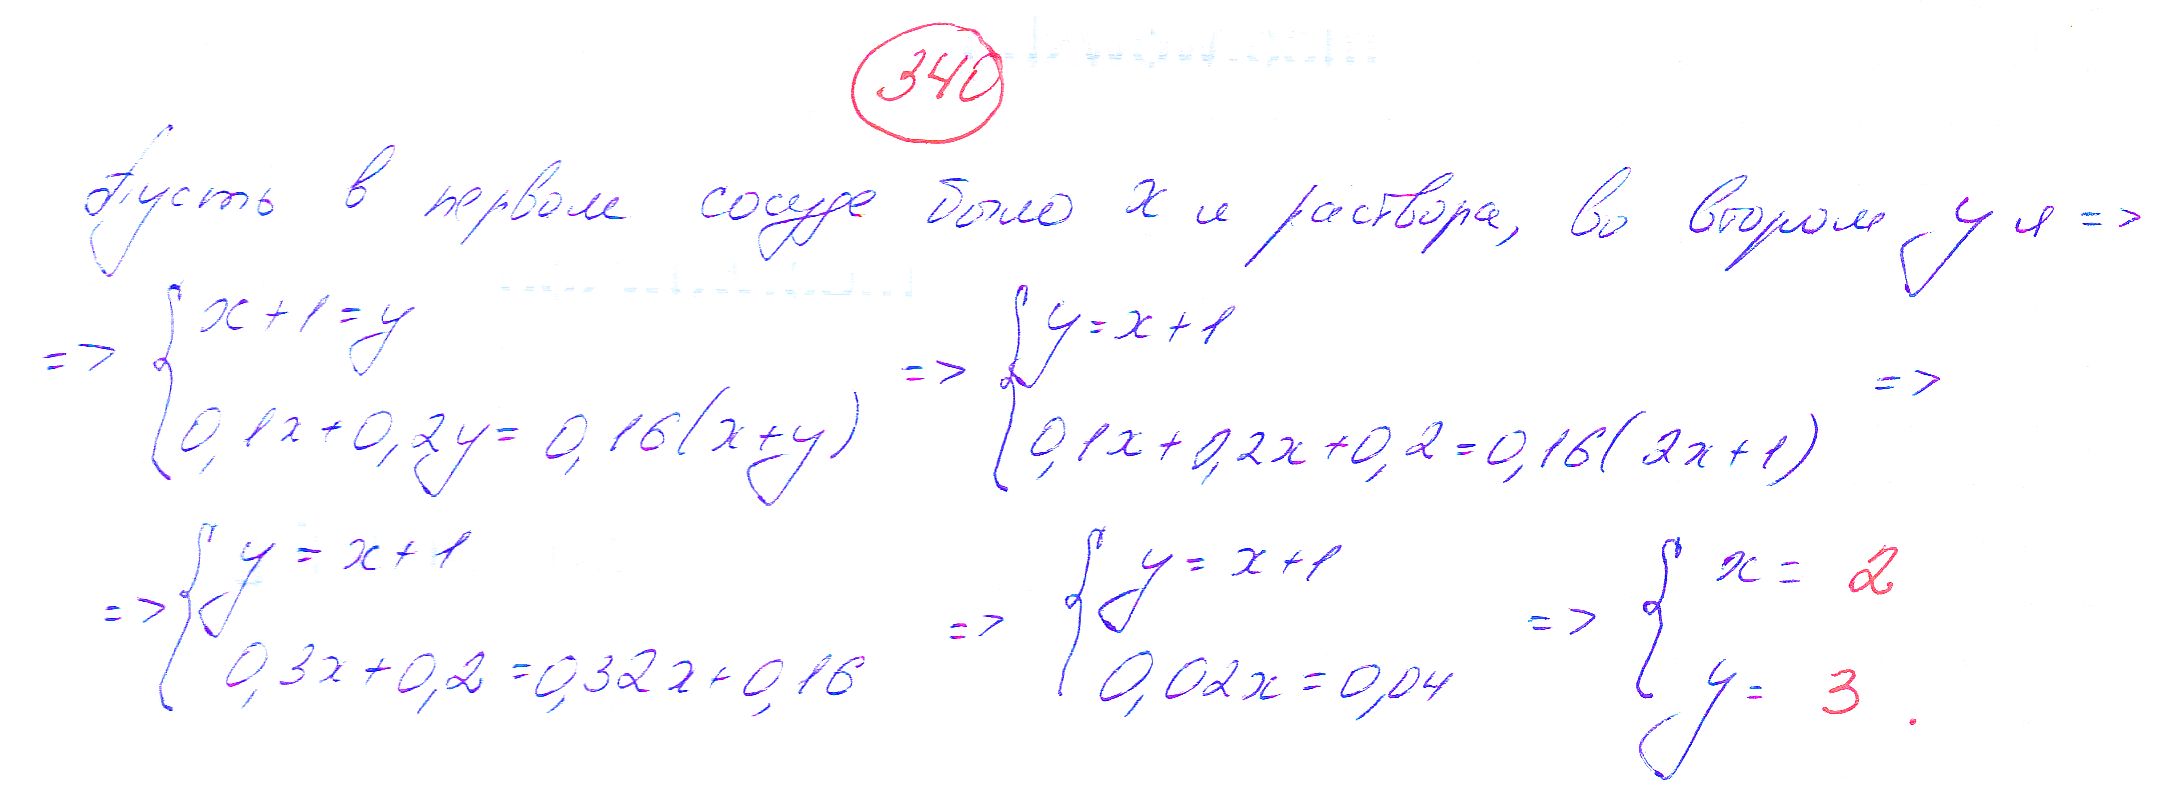 340
Пусть в первом сосуде было x л раствора, во втором y л =>
=> { x+1=y => { y=x+1 =>
0,1x+0,2y=0,16(x+y) 0,1x+0,2x+0,2=0,16(2x+1)
=> { y=x+1 => { y=x+1 => { x=2
0,3x+0,2=0,32x+0,16 0,02x=0,04 y=3.